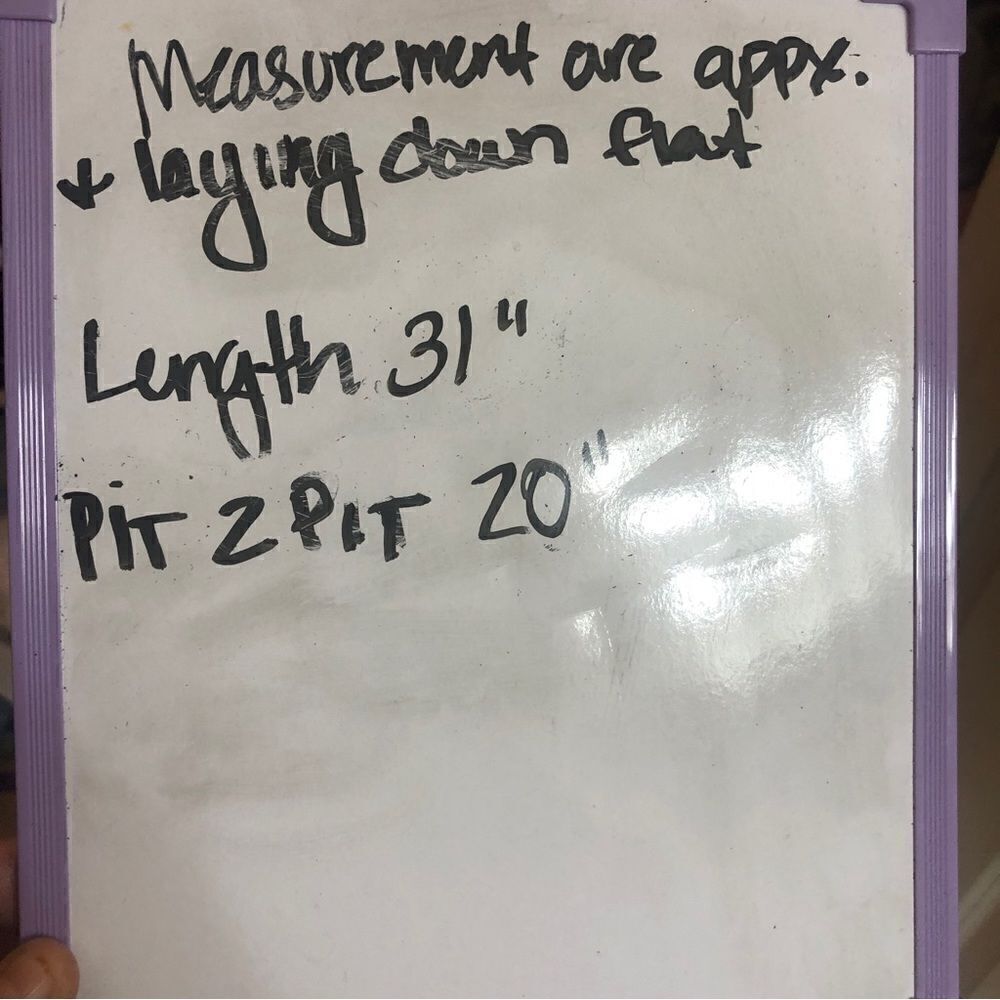 Measurement are appx.
+ laying down flat
Length 31"
PiT 2 PIT 20"